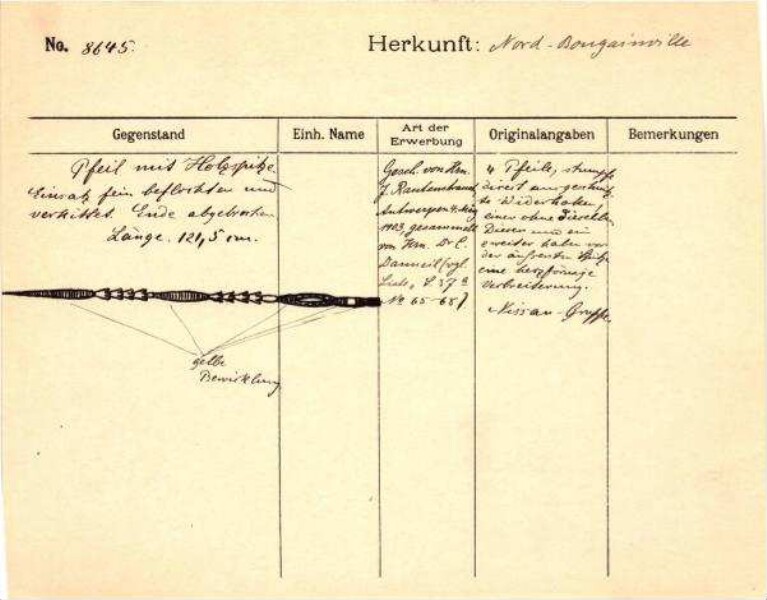 No. 8645. Herkunft: Nord-Bougainville
Gegenstand
Einh. Name
Art der
Erwerbung
Originalangaben
Bemerkungen
Pfeil mit Holzspitze.
Einsatz fein beflochten und
verkittet. Ende abgebrochen.
Länge. 121,5 cm.
gelbe
Bewicklung
Gesch. von Hrn.
J. Rautenstrauch
Antwerpen 4. März
1903, gesammelt
von Hrn. Dr C.
Danneil (vgl.
Liste, S. 37a
No 65-68)
4 Pfeile,
Widerhaken,
einer ohne dieselben
Dieser und ein
zweiter haben vor
der äußersten Spitze
eine herzförmige
Verbreiterung.
Nissan-Gruppe.